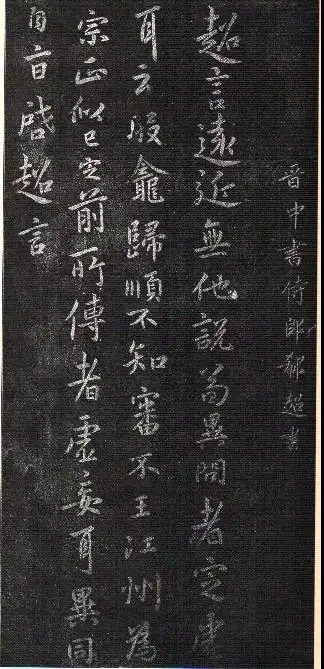 晋中書侍郎郗超書
超言遠近無他說若異問者定虛
耳云殷龕歸順不知審不王江州為
宗正似已定前所傳者虛妄耳異同
自旨啓超言